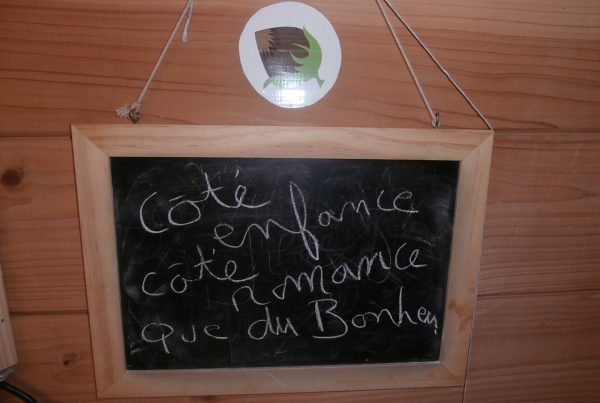 Côté
enfance
côté
romance
que du Bonheur